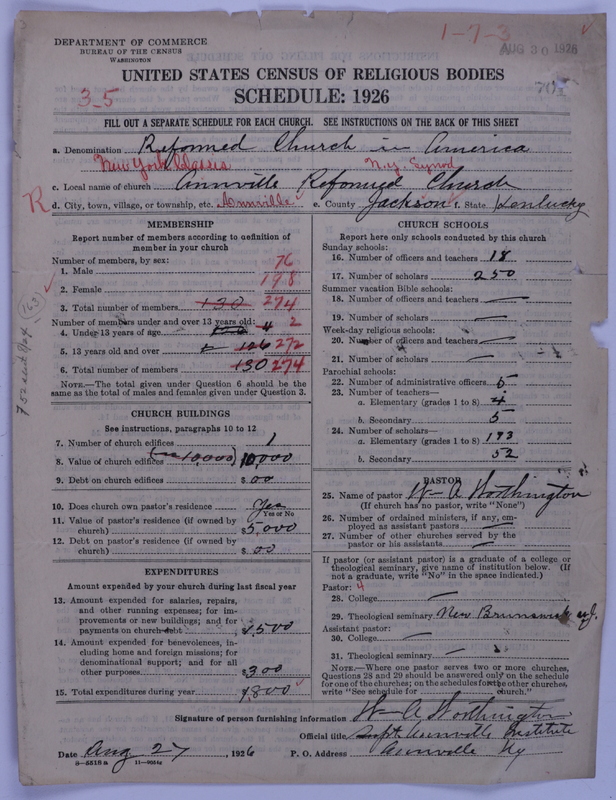 1-7-3
AUG 30 1926
DEPARTMENT OF COMMERCE
BUREAU OF THE CENSUS
WASHINGTON
UNITED STATES CENSUS OF RELIGIOUS BODIES
3-5
SCHEDULE: 1926
701
FILL OUT A SEPARATE SCHEDULE FOR EACH CHURCH. SEE INSTRUCTIONS ON THE BACK OF THIS SHEET
a. Denomination Reformed Church in America
New York Classis N.Y. Synod
c. Local name of church Annville Reformed Church
R d. City, town, village, or township, etc. Annville e. County Jackson f. State Kentucky
MEMBERSHIP
Report number of members according to definition of member in your church
Number of members, by sex:
1. Male 76
2. Female 198
3. Total number of members 130 274
Number of members under and over 13 years old:
4. Under 13 years of age 4 2
5. 13 years old and over 126 272
6. Total number of members 130 274
NOTE.—The total given under Question 6 should be the same as the total of males and females given under Question 3.
163
CHURCH BUILDINGS
See instructions, paragraphs 10 to 12
7. Number of church edifices 1
8. Value of church edifices (10,000) 10,000
9. Debt on church edifices $ 00
10. Does church own pastor's residence Yes
Yes or No
11. Value of pastor's residence (if owned by church) $5,000
12. Debt on pastor's residence (if owned by church) $ 00
EXPENDITURES
Amount expended by your church during last fiscal year
13. Amount expended for salaries, repairs, and other running expenses; for improvements or new buildings; and for payments on church debt $1,500
14. Amount expended for benevolences, including home and foreign missions; for denominational support; and for all other purposes $300
15. Total expenditures during year $1,800
CHURCH SCHOOLS
Report here only schools conducted by this church
Sunday schools:
16. Number of officers and teachers 18
17. Number of scholars 250
Summer vacation Bible schools:
18. Number of officers and teachers —
19. Number of scholars —
Week-day religious schools:
20. Number of officers and teachers —
21. Number of scholars —
Parochial schools:
22. Number of administrative officers 5
23. Number of teachers—
a. Elementary (grades 1 to 8) 4
b. Secondary 5
24. Number of scholars—
a. Elementary (grades 1 to 8) 193
b. Secondary 52
PASTOR
25. Name of pastor Wm A Worthington
(If church has no pastor, write "None")
26. Number of ordained ministers, if any, employed as assistant pastors —
27. Number of other churches served by the pastor or his assistants —
If pastor (or assistant pastor) is a graduate of a college or theological seminary, give name of institution below. (If not a graduate, write "No" in the space indicated.)
Pastor: 4
28. College —
29. Theological seminary New Brunswick N.J.
Assistant pastor:
30. College —
31. Theological seminary —
NOTE.—Where one pastor serves two or more churches, Questions 28 and 29 should be answered only on the schedule for one of the churches; on the schedules for the other churches, write "See schedule for church."
Signature of person furnishing information Wm A Worthington
Official title Supt Annville Institute
Date Aug 27, 1926 P. O. Address Annville Ky
8-5518 a